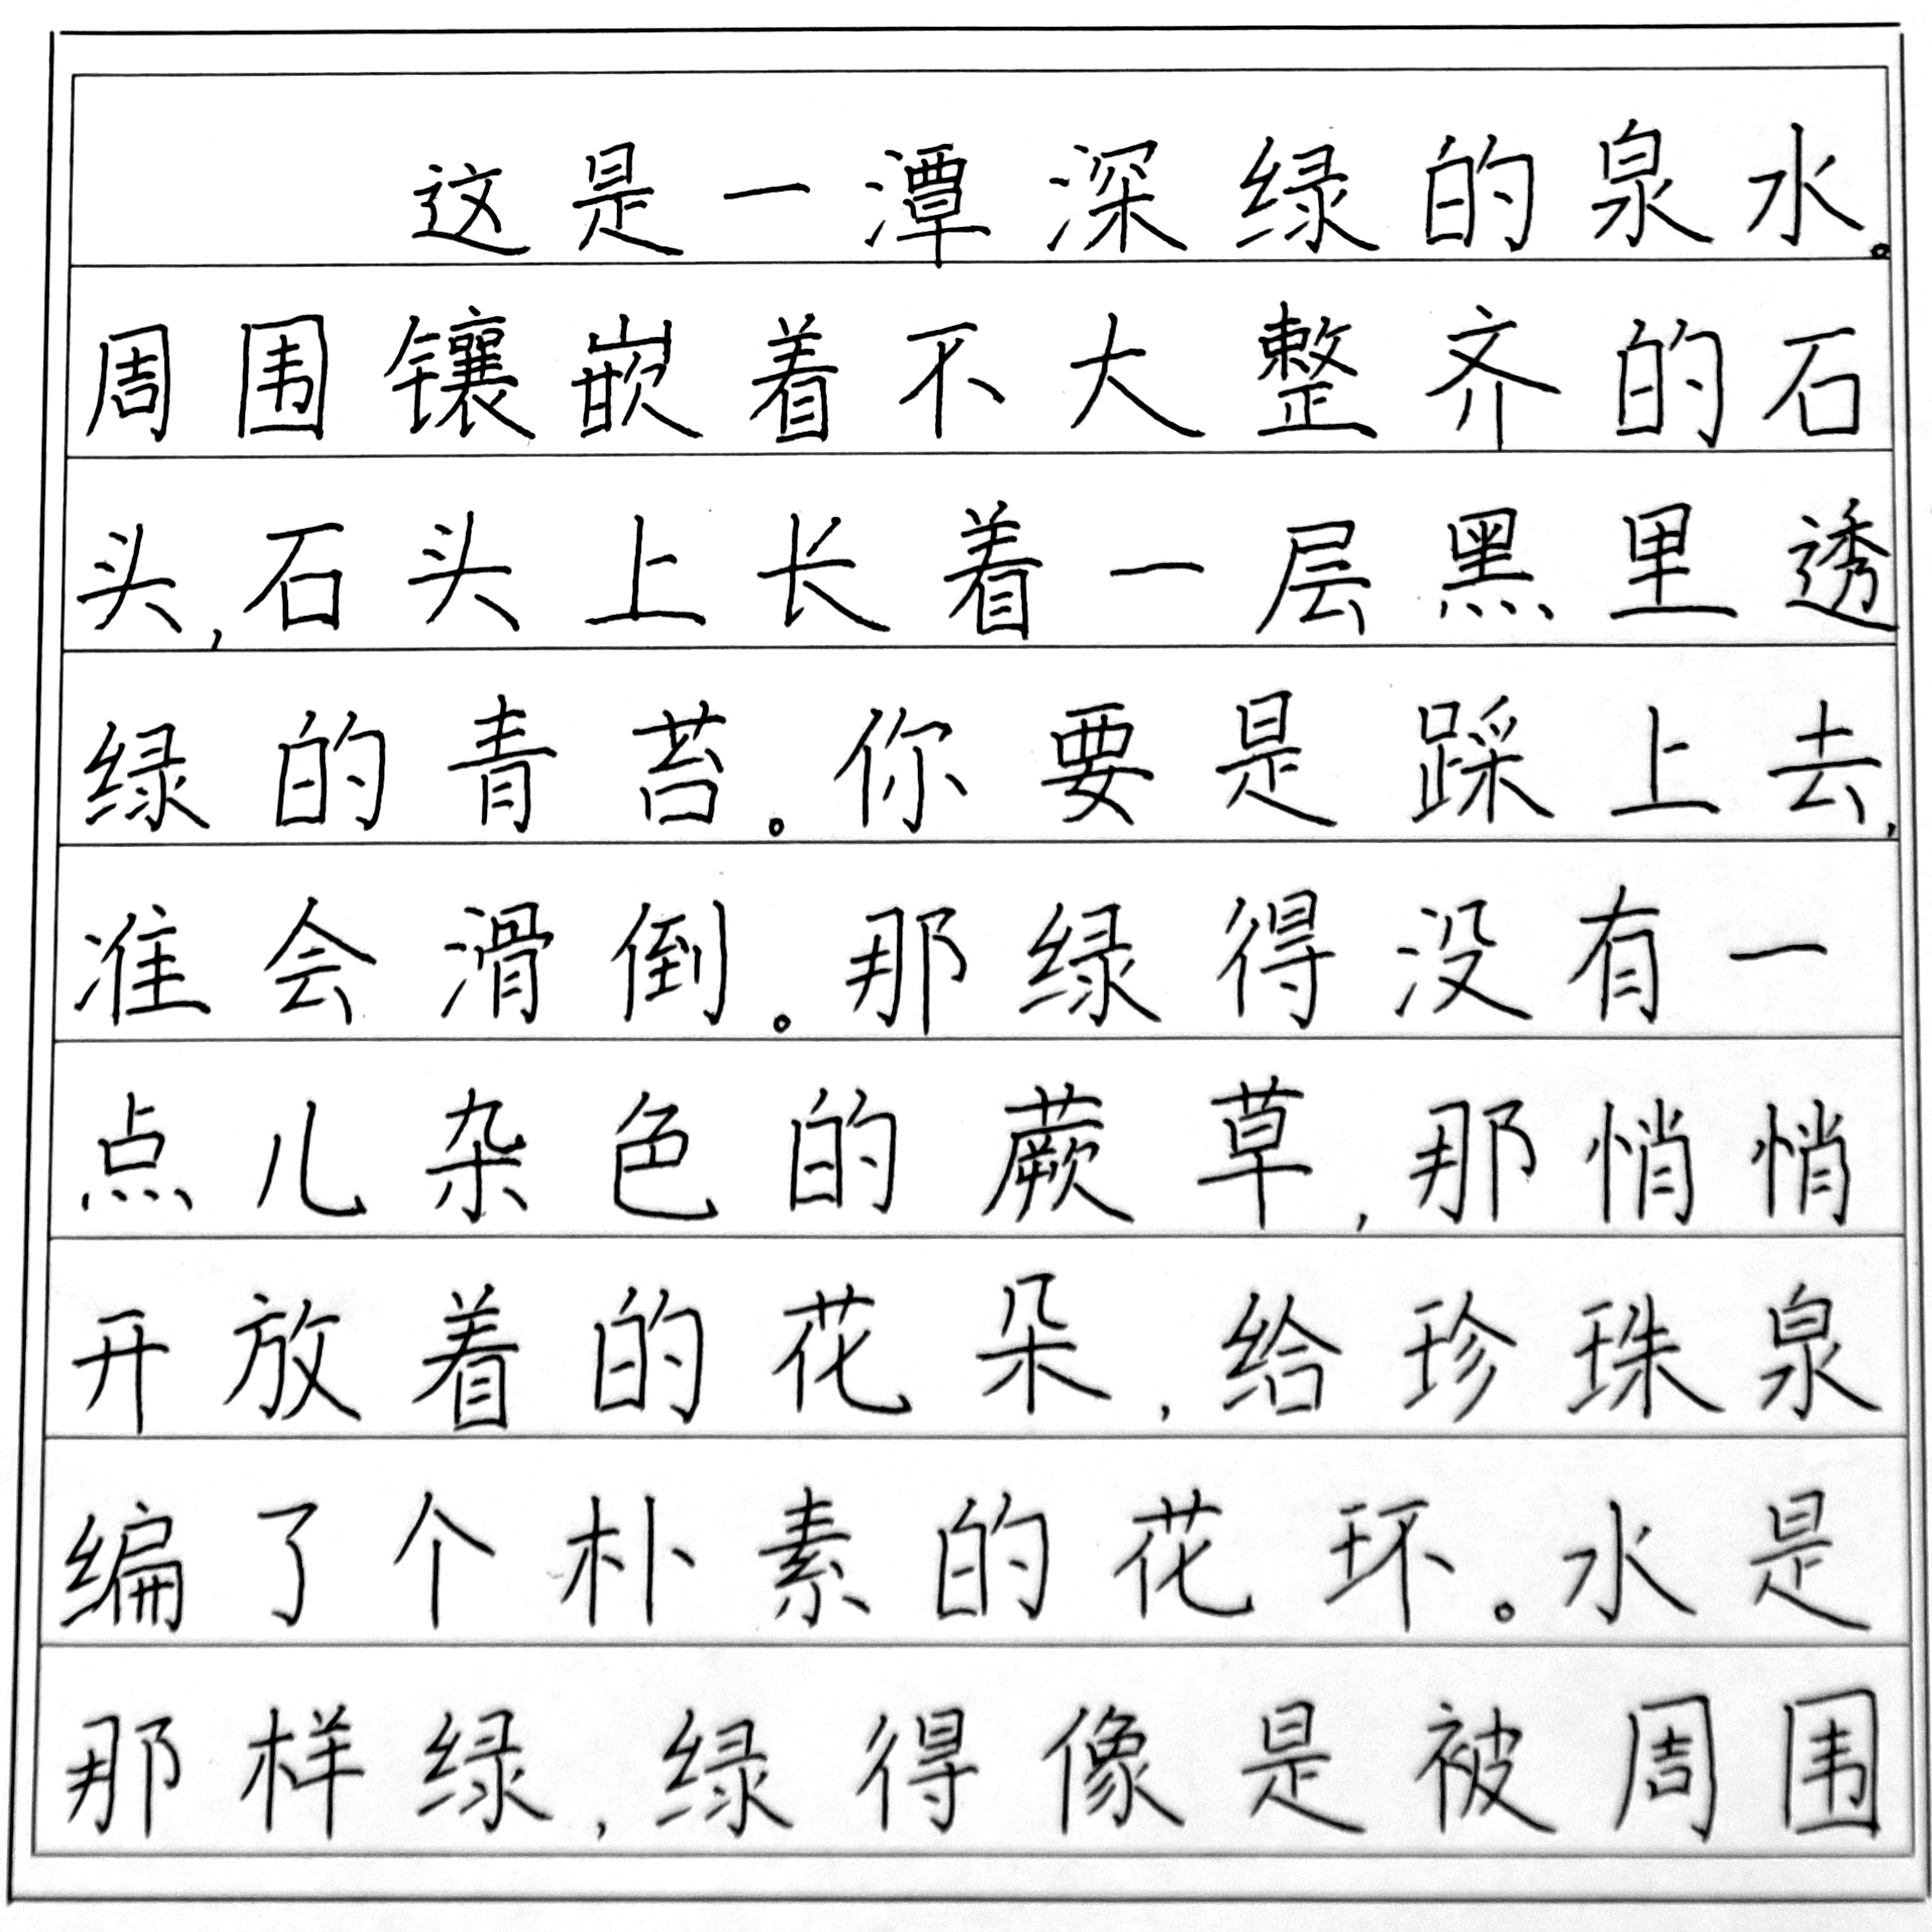 这是一潭深绿的泉水。
周围镶嵌着不大整齐的石
头,石头上长着一层黑里透
绿的青苔。你要是踩上去,
准会滑倒。那绿得没有一
点儿杂色的蕨草,那悄悄
开放着的花朵,给珍珠泉
编了个朴素的花环。水是
那样绿,绿得像是被周围